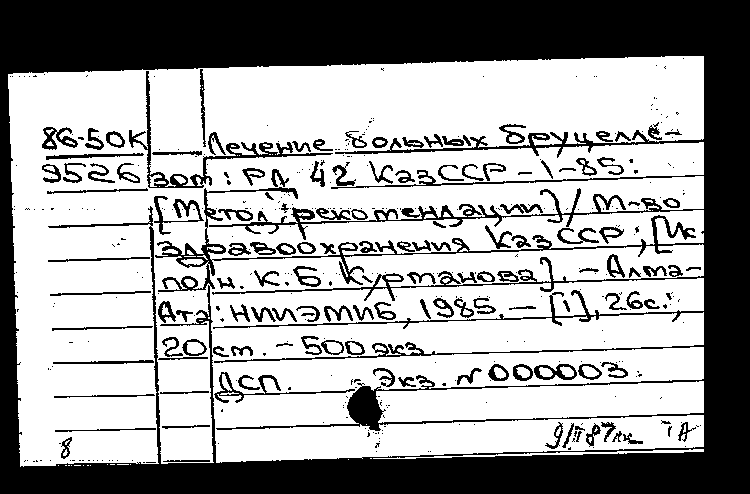 86-50К Лечение больных бруцелле-
9526 зом: РД 42 КазССР-1-85:
[Метод. рекомендации] / М-во
здравоохранения КазССР; [Ис-
полн. К.Б. Курманова]. - Алма-
Ата: НИИЭМИБ, 1985. - [1], 26с.;
20 см. - 500 экз.
ДСП. Экз. N 000003.
8 9/II 87